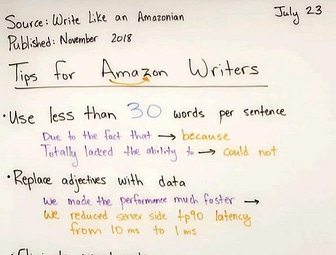 Source: Write Like an Amazonian
July 23
Published: November 2018
Tips for Amazon Writers
• Use less than 30 words per sentence
Due to the fact that → because
Totally lacked the ability to → could not
• Replace adjectives with data
We made the performance much faster →
We reduced server side tp90 latency
from 10 ms to 1 ms